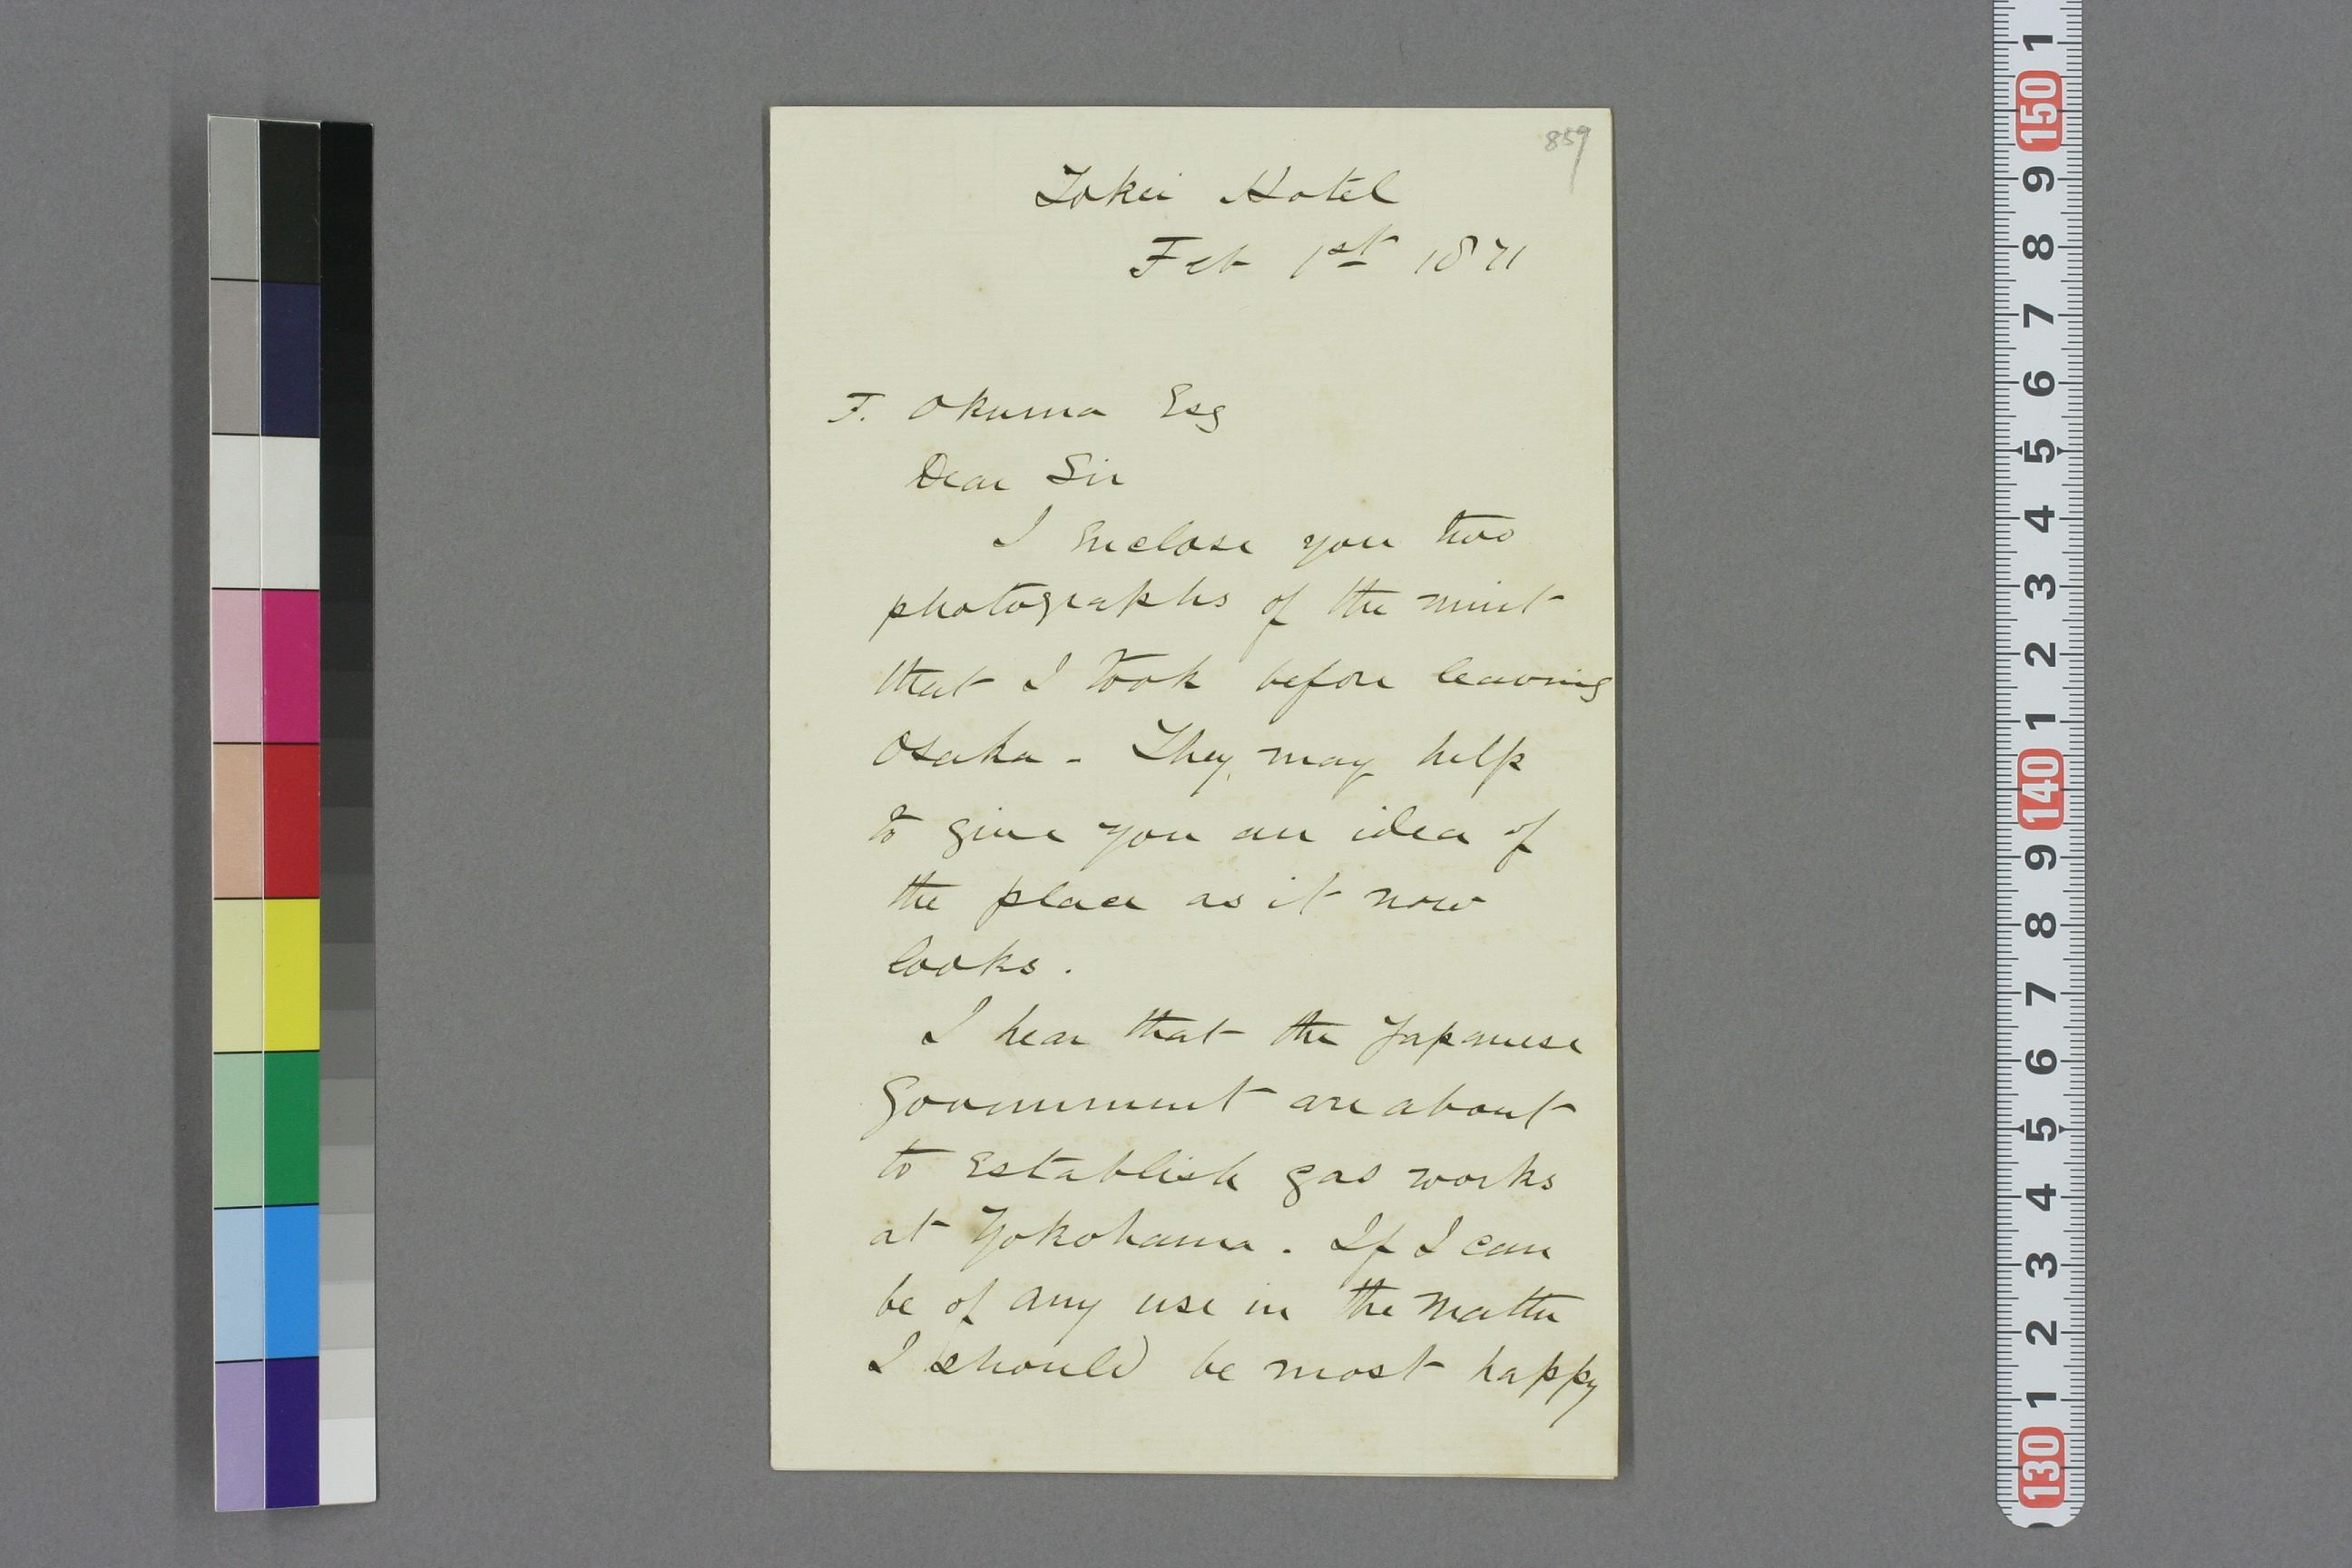 859
Tokei Hotel
Feb 1st 1871
F. Okuma Esq
Dear Sir
I enclose you two
photographs of the mint
that I took before leaving
Osaka - They may help
to give you an idea of
the place as it now
looks.
I hear that the Japanese
Government are about
to Establish gas works
at Yokohama. If I can
be of any use in the matter
I should be most happy
1
150
9
8
7
6
5
4
3
2
1
140
9
8
7
6
5
4
3
2
1
130